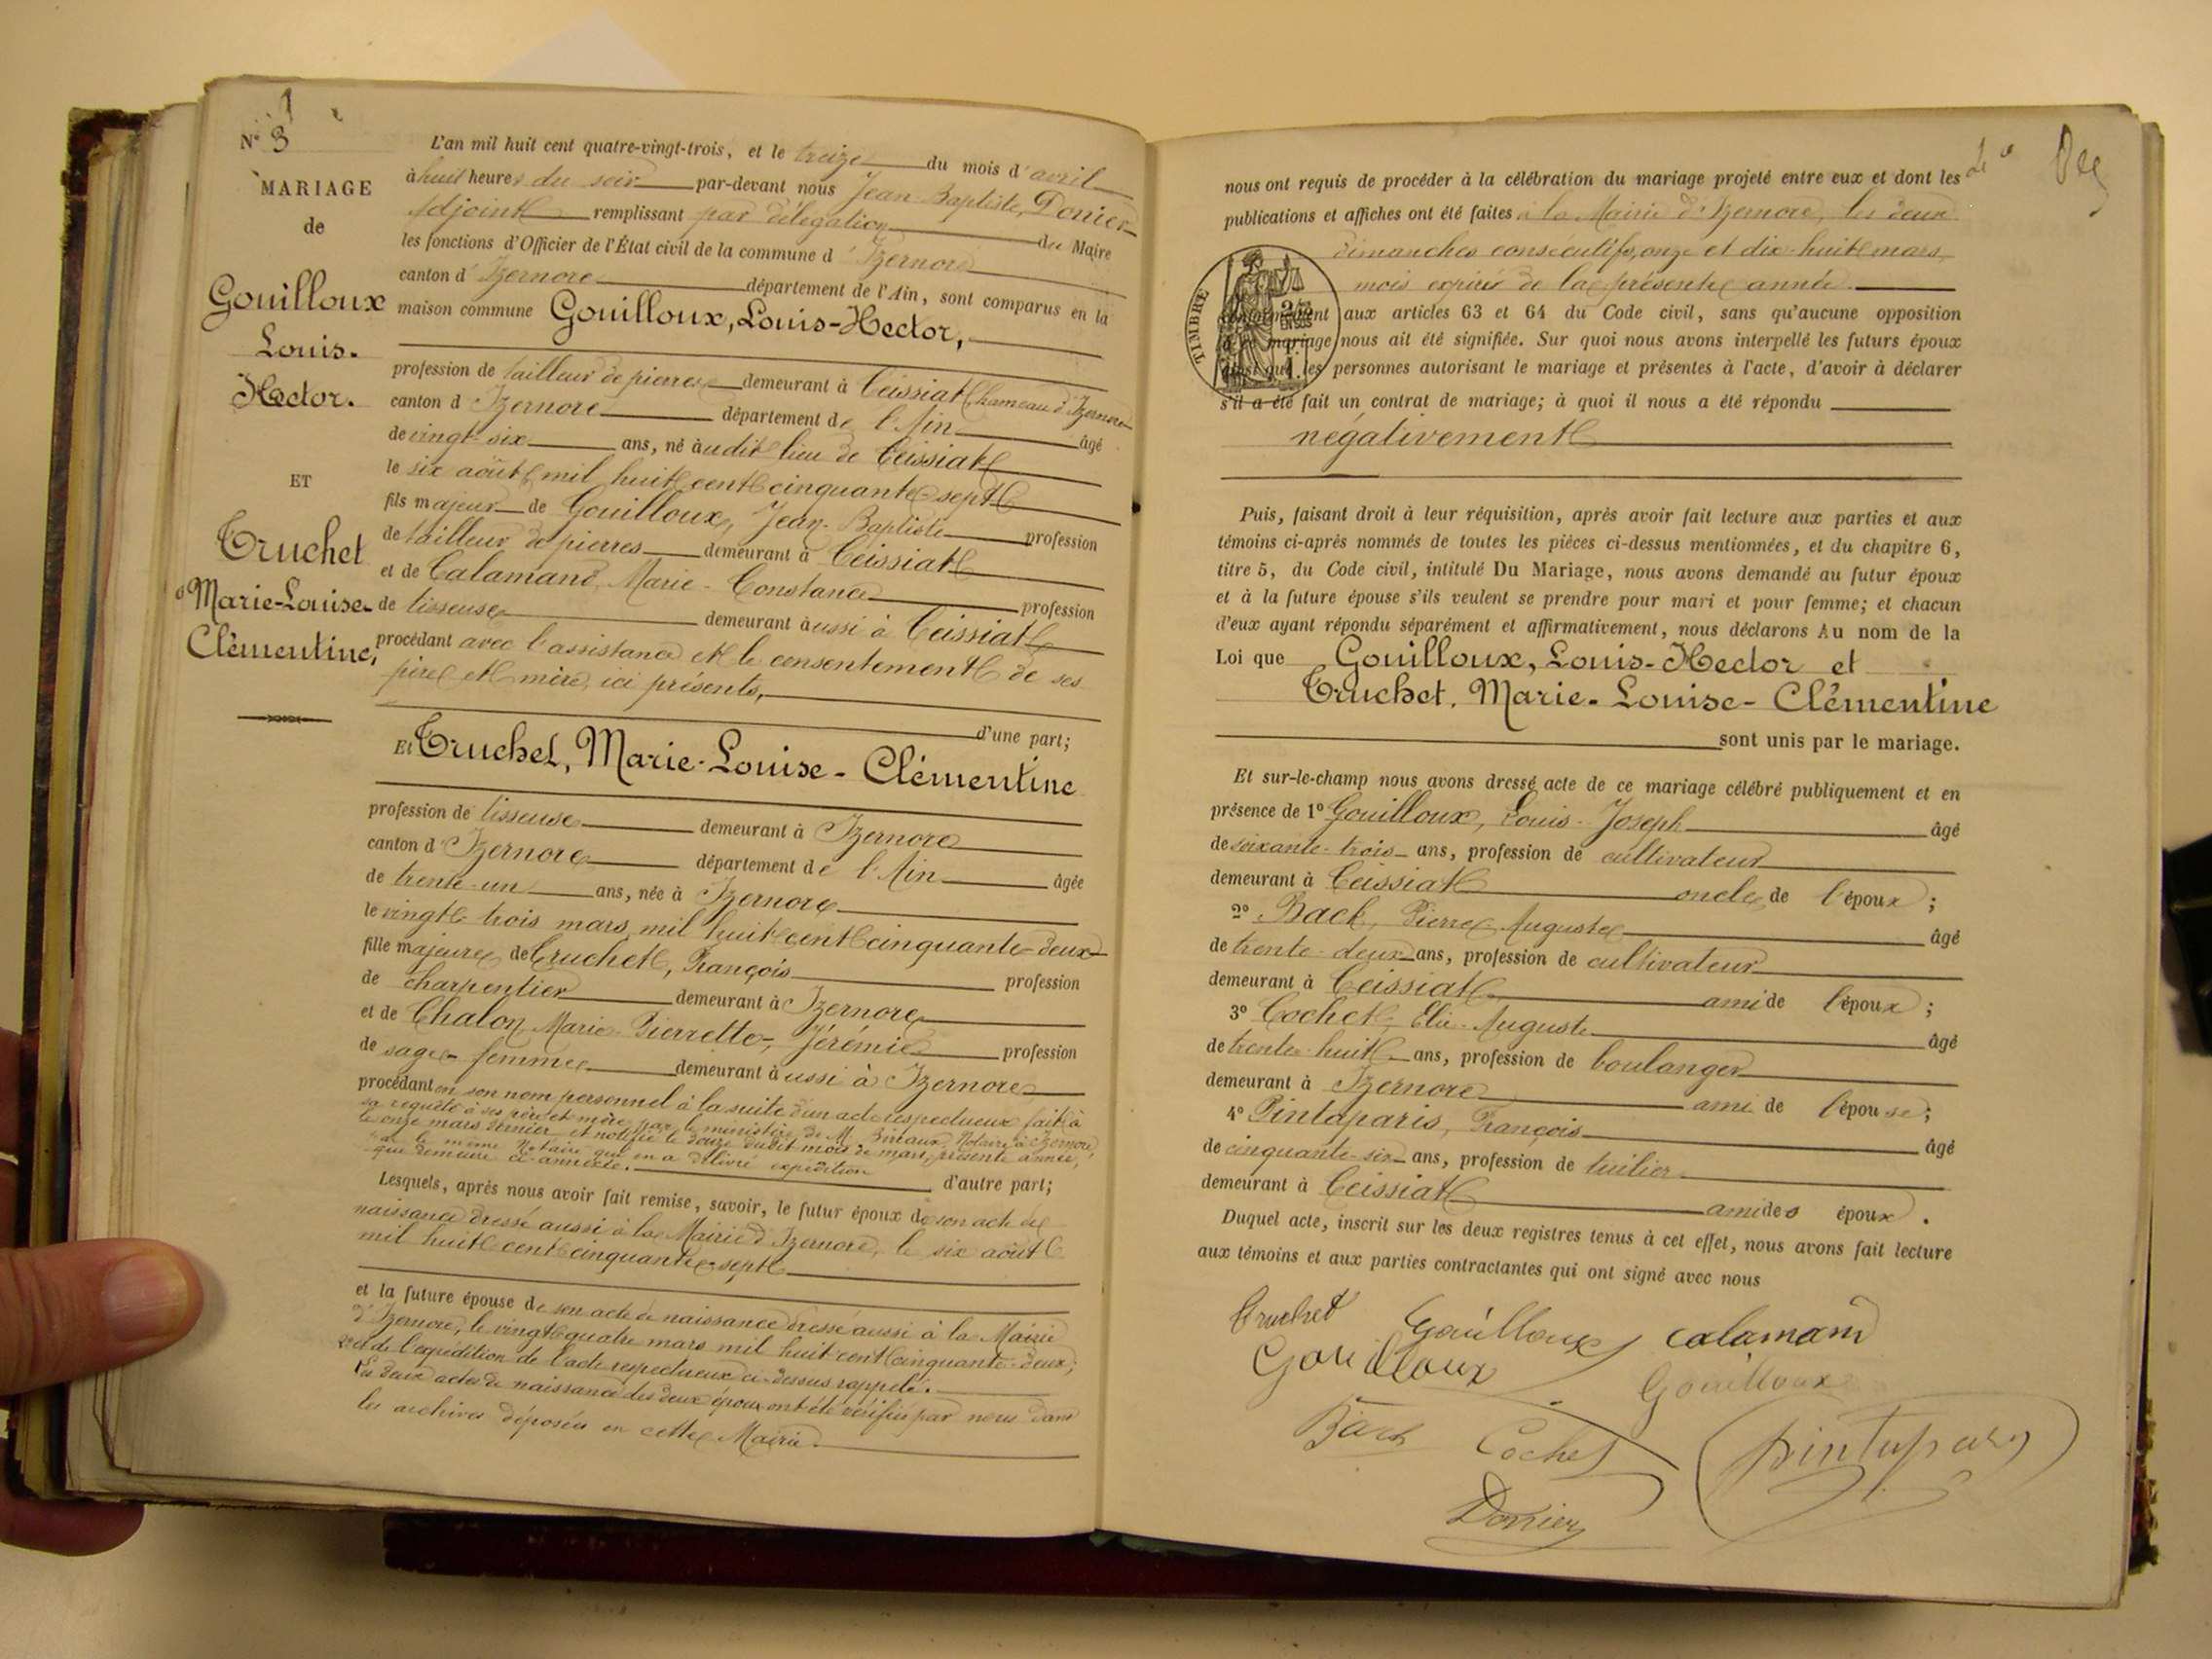 N° 3
MARIAGE
de
Gouilloux
Louis.
Hector.
ET
Truchet
Marie-Louise-
Clémentine,
L'an mil huit cent quatre-vingt-trois, et le treize du mois d'avril
à huit heures du soir par-devant nous Jean-Baptiste, Donier
Adjoint remplissant par délégation du Maire
les fonctions d'Officier de l'État civil de la commune d'Izernore
canton d'Izernore département de l'Ain, sont comparus en la
maison commune Gouilloux, Louis-Hector,
profession de tailleur de pierres demeurant à Ceissiat, hameau d'Izernore
canton d'Izernore département de l'Ain âgé
de vingt-six ans, né audit lieu de Ceissiat
le six août mil huit cent cinquante-sept
fils majeur de Gouilloux, Jean-Baptiste profession
de tailleur de pierres demeurant à Ceissiat
et de Calamand, Marie-Constance profession
de tisseuse demeurant aussi à Ceissiat
procédant avec l'assistance et le consentement de ses
père et mère, ici présents,
d'une part;
Et Truchet, Marie-Louise-Clémentine
profession de tisseuse demeurant à Izernore
canton d'Izernore département de l'Ain âgée
de trente-un ans, née à Izernore
le vingt-trois mars mil huit cent cinquante-deux
fille majeure de Truchet, François profession
de charpentier demeurant à Izernore
et de Chalon, Marie-Pierrette-Jérémie profession
de sage-femme demeurant aussi à Izernore
procédant en son nom personnel à la suite d'un acte respectueux fait à
sa requête à ses père et mère par le ministère de M. Notaire à Izernore,
le onze mars dernier et notifié le douze dudit mois de mars, présente année,
par le même Notaire qui en a délivré expédition
qui demeure ci-annexée. d'autre part;
Lesquels, après nous avoir fait remise, savoir, le futur époux de son acte de
naissance dressé aussi à la Mairie d'Izernore, le six août
mil huit cent cinquante-sept
et la future épouse de son acte de naissance dressé aussi à la Mairie
d'Izernore, le vingt-quatre mars mil huit cent cinquante-deux;
2° et de l'expédition de l'acte respectueux ci-dessus rappelé.
Les deux actes de naissance des deux époux ont été vérifiés par nous dans
les archives déposées en cette Mairie.
nous ont requis de procéder à la célébration du mariage projeté entre eux et dont les
publications et affiches ont été faites à la Mairie d'Izernore, les deux
dimanches consécutifs, onze et dix-huit mars,
mois expiré de la présente année.
TIMBRE
conformément aux articles 63 et 64 du Code civil, sans qu'aucune opposition
à ce mariage nous ait été signifiée. Sur quoi nous avons interpellé les futurs époux
ainsi que les personnes autorisant le mariage et présentes à l'acte, d'avoir à déclarer
s'il a été fait un contrat de mariage; à quoi il nous a été répondu
négativement
Puis, faisant droit à leur réquisition, après avoir fait lecture aux parties et aux
témoins ci-après nommés de toutes les pièces ci-dessus mentionnées, et du chapitre 6,
titre 5, du Code civil, intitulé Du Mariage, nous avons demandé au futur époux
et à la future épouse s'ils veulent se prendre pour mari et pour femme; et chacun
d'eux ayant répondu séparément et affirmativement, nous déclarons Au nom de la
Loi que Gouilloux, Louis-Hector et
Truchet. Marie-Louise-Clémentine
sont unis par le mariage.
Et sur-le-champ nous avons dressé acte de ce mariage célébré publiquement et en
présence de 1° Gouilloux, Louis-Joseph âgé
de soixante-trois ans, profession de cultivateur
demeurant à Ceissiat oncle de l'époux;
2° Back, Pierre Auguste âgé
de trente-deux ans, profession de cultivateur
demeurant à Ceissiat ami de l'époux;
3° Cochet, Elie-Auguste âgé
de trente-huit ans, profession de boulanger
demeurant à Izernore ami de l'épouse;
4° Pintaparis, François âgé
de cinquante-six ans, profession de tuilier
demeurant à Ceissiat ami des époux.
Duquel acte, inscrit sur les deux registres tenus à cet effet, nous avons fait lecture
aux témoins et aux parties contractantes qui ont signé avec nous
Truchet Gouilloux calamand
Gouilloux Gouilloux
Back Cochet pintaparis
Donier